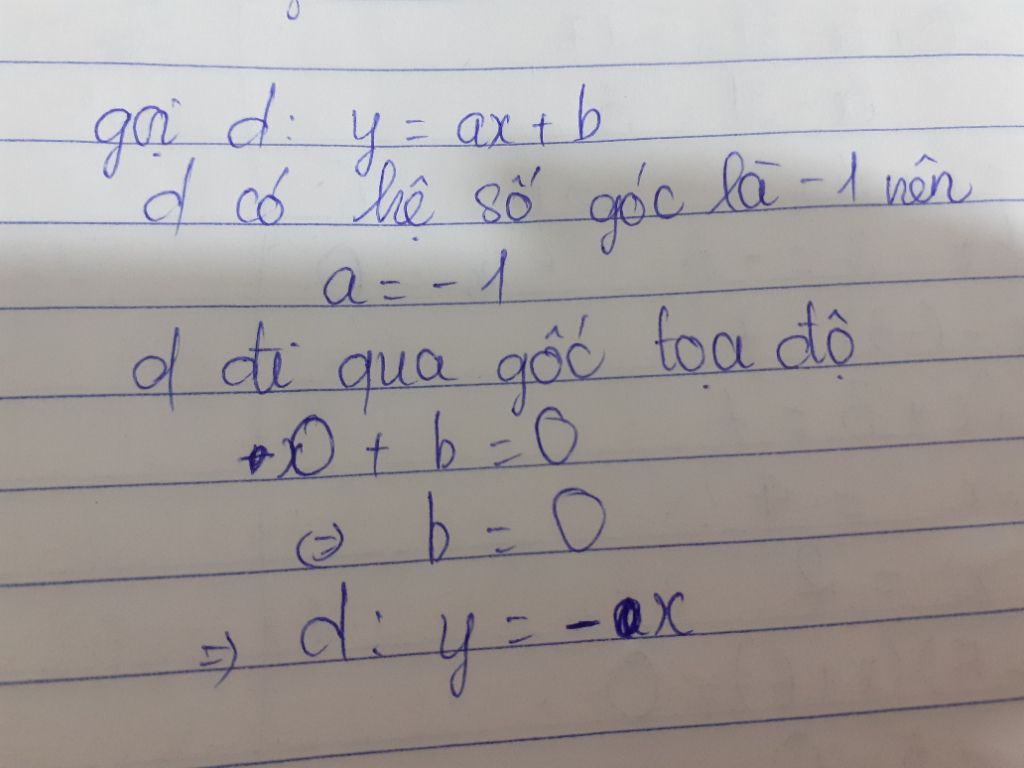 gọi d: y = ax + b
d có hệ số góc là -1 nên
a = - 1
d đi qua gốc tọa độ
0 + b = 0
⇔ b = 0
⇒ d: y = -x